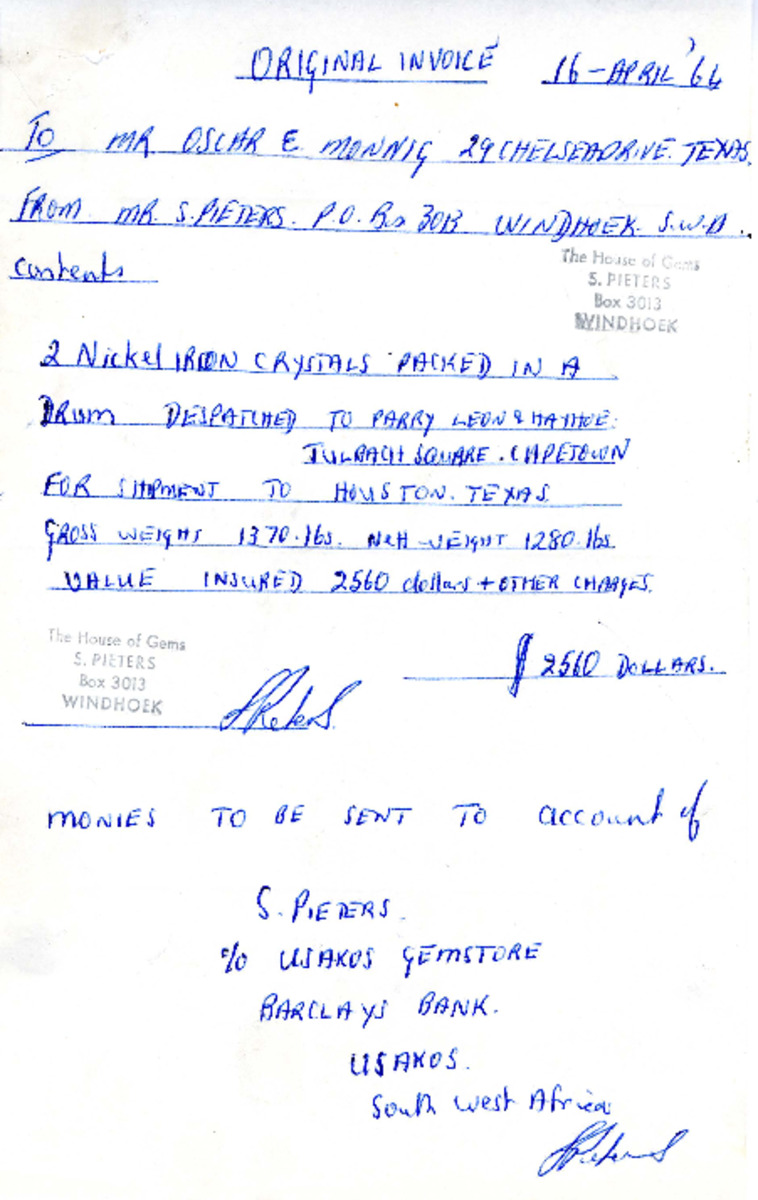 ORIGINAL INVOICE 16-APRIL '64
To MR OSCAR E MONNIG 29 CHELSEADRIVE. TEXAS.
FROM. MR. S. PIETERS. P.O. Box 3013 WINDHOEK. S.W.A.
Contents
The House of Gems
S. PIETERS
Box 3013
WINDHOEK
2 Nickel IRON CRYSTALS PACKED IN A
DRUM DESPATCHED TO PARRY LEON & HAYHOE.
TULBACH SQUARE. CAPETOWN
FOR SHIPMENT TO HOUSTON. TEXAS
GROSS WEIGHT 1370. lbs. Nett WEIGHT 1280. lbs.
VALUE INSURED 2560 dollars + OTHER CHARGES.
The House of Gems
S. PIETERS
Box 3013
WINDHOEK
$ 2560 DOLLARS.
S Pieters
MONIES TO BE SENT TO account of
S. PIETERS.
c/o USAKOS GEMSTORE
BARCLAYS BANK.
USAKOS.
South West Africa
S Pieters